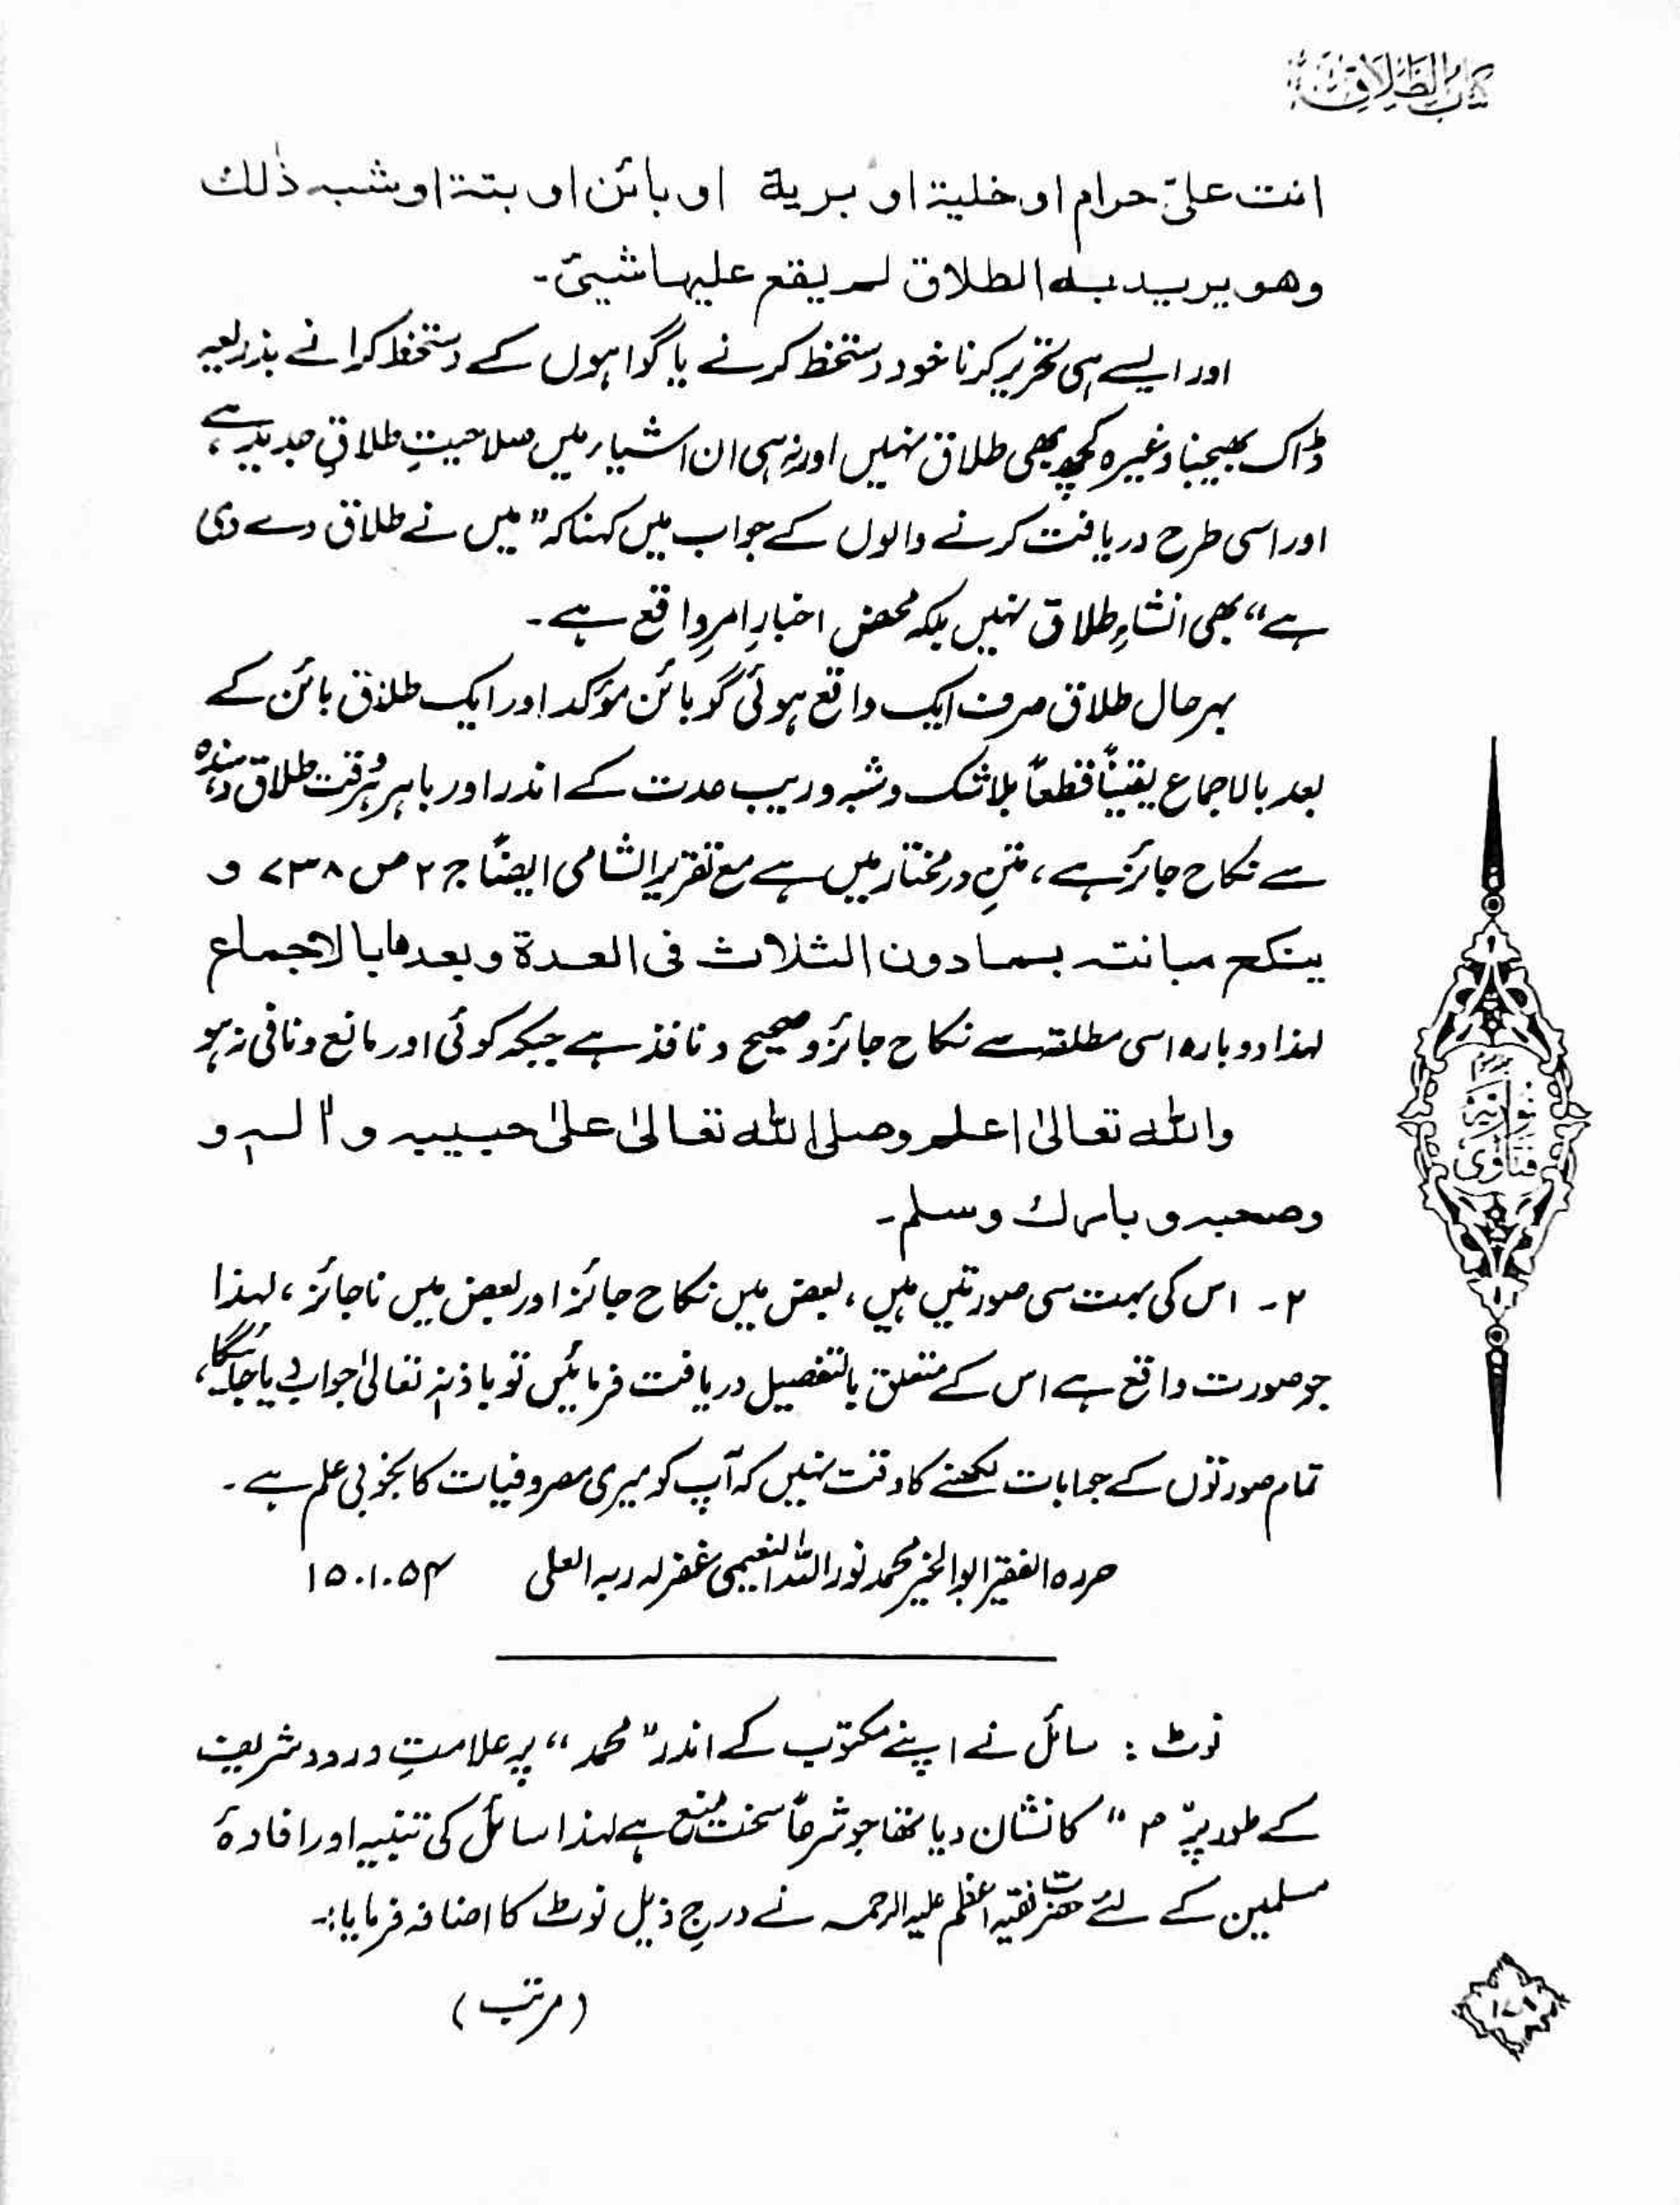 كتاب الطلاق
انت علیّ حرام او خلیة او بریة او بائن او بتة او شبہ ذٰلك
وھو یرید بہ الطلاق لم یقع علیہا شیئ۔
اور ایسے ہی تحریر کرنا خود دستخط کرنے یا گواہوں کے دستخط کرانے بذریعہ
ڈاک بھیجنا وغیرہ کچھ بھی طلاق نہیں اور نہ ہی ان اشیاء میں صلاحیتِ طلاقِ جدید ہے،
اور اسی طرح دریافت کرنے والوں کے جواب میں کہنا کہ ”میں نے طلاق دے دی
ہے“ بھی انشاءِ طلاق نہیں بلکہ محض اخبارِ امرِ واقع ہے۔
بہرحال طلاق صرف ایک واقع ہوئی گو بائن مؤکد اور ایک طلاق بائن کے
بعد بالاجماع یقیناً قطعاً بلا شک و شبہ و ریب عدت کے اندر اور باہر ہر وقت طلاق دہندہ
سے نکاح جائز ہے، متنِ درمختار میں ہے مع تقریر الشامی ایضاً ج ۲ ص ۷۳۸ و
ینکح مبانتہ بما دون الثلاث فی العدة و بعدھا بالاجماع
لہذا دوبارہ اسی مطلقہ سے نکاح جائز و صحیح و نافذ ہے جبکہ کوئی اور مانع و نافی نہ ہو
واللہ تعالیٰ اعلم وصلی اللہ تعالیٰ علیٰ حبیبہ واٰلہ و
وصحبہ و بارك وسلم۔
۲۔ اس کی بہت سی صورتیں ہیں، بعض میں نکاح جائز اور بعض میں ناجائز، لہذا
جو صورت واقع ہے اس کے متعلق بالتفصیل دریافت فرمائیں تو باذنہ تعالیٰ جواب دیا جائیگا،
تمام صورتوں کے جوابات لکھنے کا وقت نہیں کہ آپ کو میری مصروفیات کا بخوبی علم ہے۔
حررہ الفقیر ابوالخیر محمد نوراللہ النعیمی غفرلہ ربہ العلی ۱۵۔۱۔۵۴
نوٹ : سائل نے اپنے مکتوب کے اندر ”محمد“ پر علامتِ درود شریف
کے طور پر ”ؐ“ کا نشان دیا تھا جو شرعاً سخت منع ہے لہذا سائل کی تنبیہ اور افادۂ
مسلمین کے لئے حضرت فقیہ اعظم علیہ الرحمہ نے درجِ ذیل نوٹ کا اضافہ فرمایا:۔
(مرتب)
فتاوی نوریہ